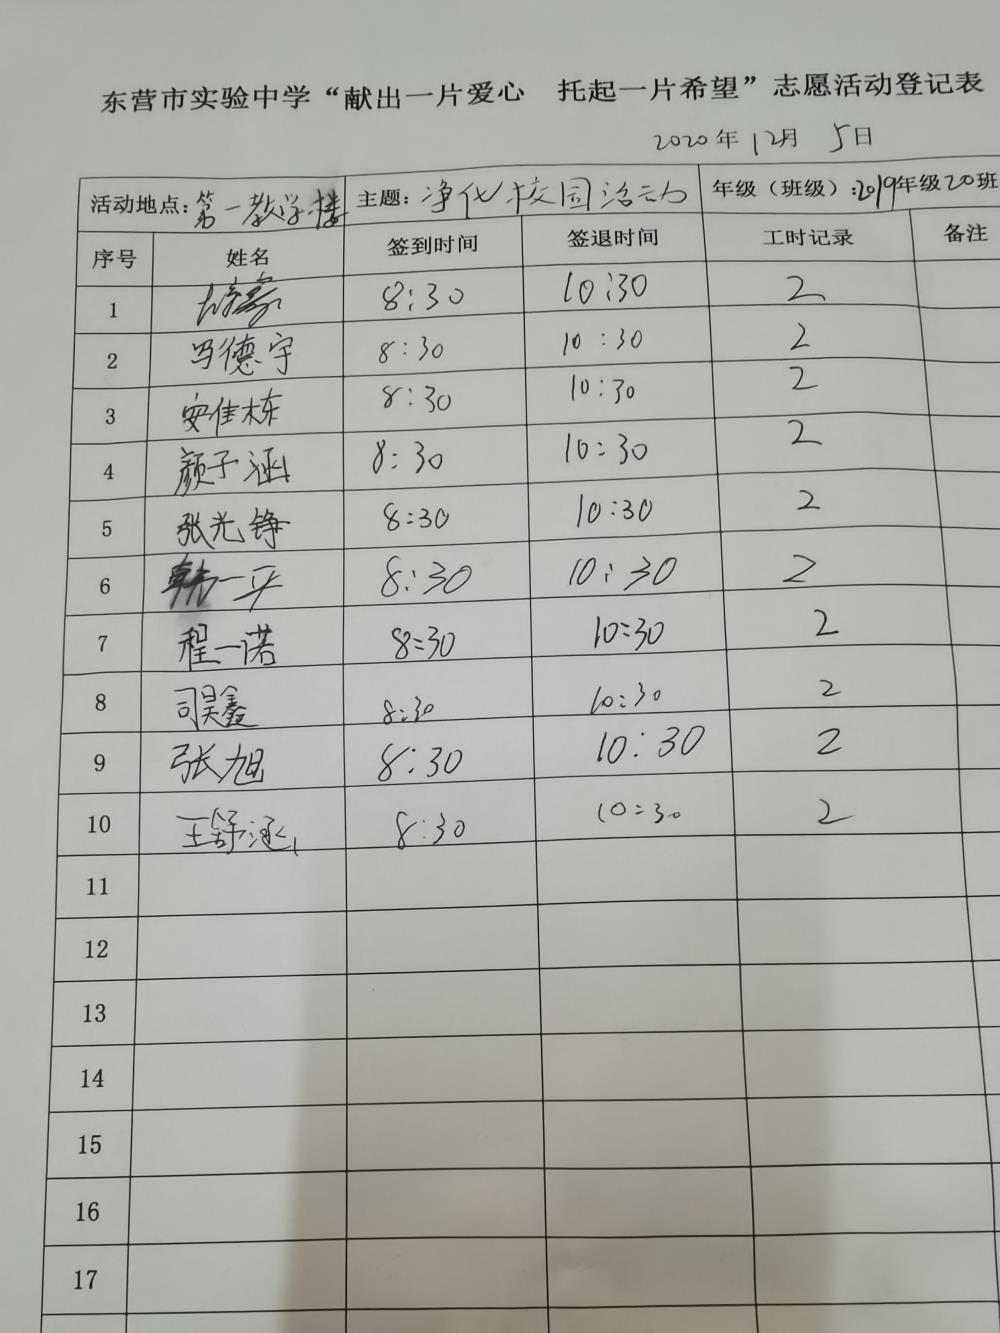 东营市实验中学“献出一片爱心 托起一片希望”志愿活动登记表
2020年12月5日
活动地点:第一教学楼 主题:净化校园活动 年级(班级):2019年级20班
序号 姓名 签到时间 签退时间 工时记录 备注
1 8:30 10:30 2
2 冯德宇 8:30 10:30 2
3 安佳栋 8:30 10:30 2
4 颜子涵 8:30 10:30 2
5 张光铮 8:30 10:30 2
6 韩一平 8:30 10:30 2
7 程一诺 8:30 10:30 2
8 司昊鑫 8:30 10:30 2
9 张旭 8:30 10:30 2
10 王舒涵 8:30 10:30 2
11
12
13
14
15
16
17